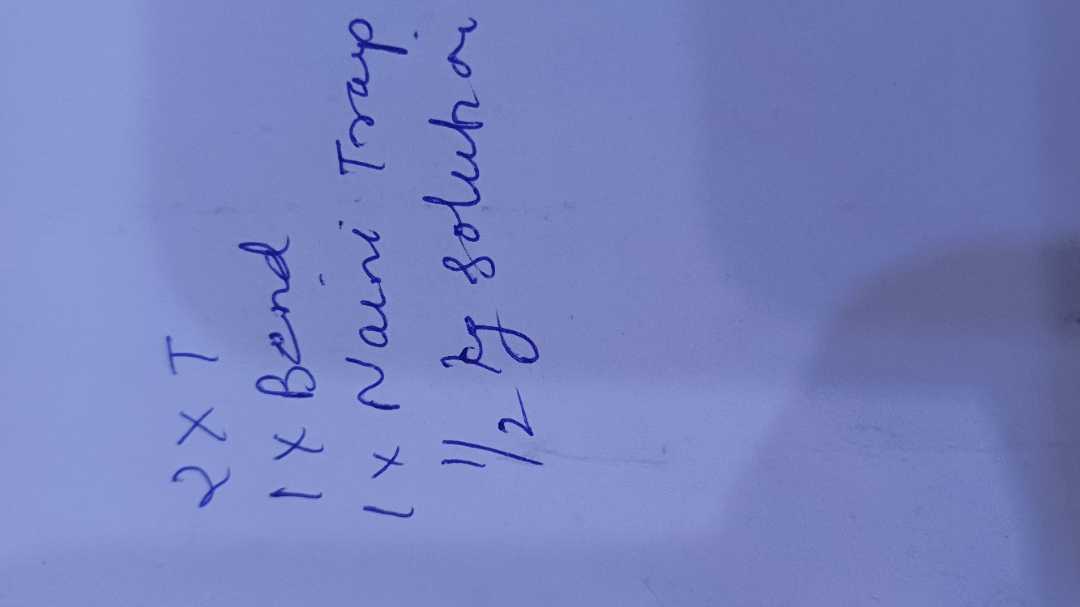 2 X T
1 X Bend
1 x Naini Trap
1/2 kg solution